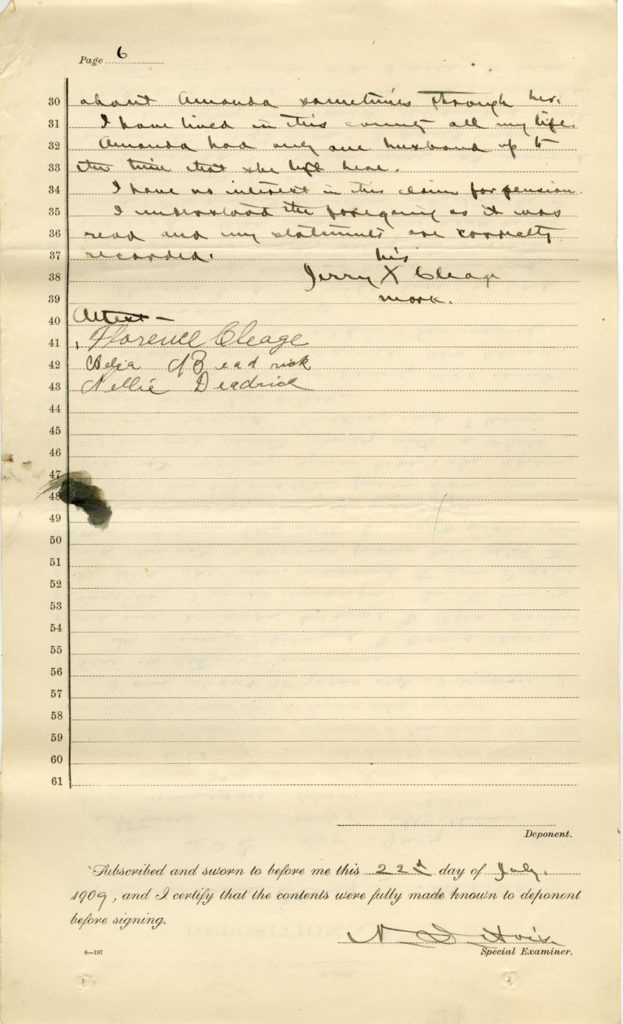 Page 6
30 about Amanda sometimes through her.
31 I have lived in this county all my life.
32 Amanda had only one husband up to
33 the time that she left here.
34 I have no interest in this claim for pension.
35 I understood the foregoing as it was
36 read and my statements are correctly
37 recorded. his
38 Jerry X Cleage
39 mark.
40 Attest-
41 Florence Cleage
42
43 Nellie Deadrick
44
45
46
47
48
49
50
51
52
53
54
55
56
57
58
59
60
61
Deponent.
Subscribed and sworn to before me this 22d day of July,
1909, and I certify that the contents were fully made known to deponent
before signing.
N
6-197 Special Examiner.